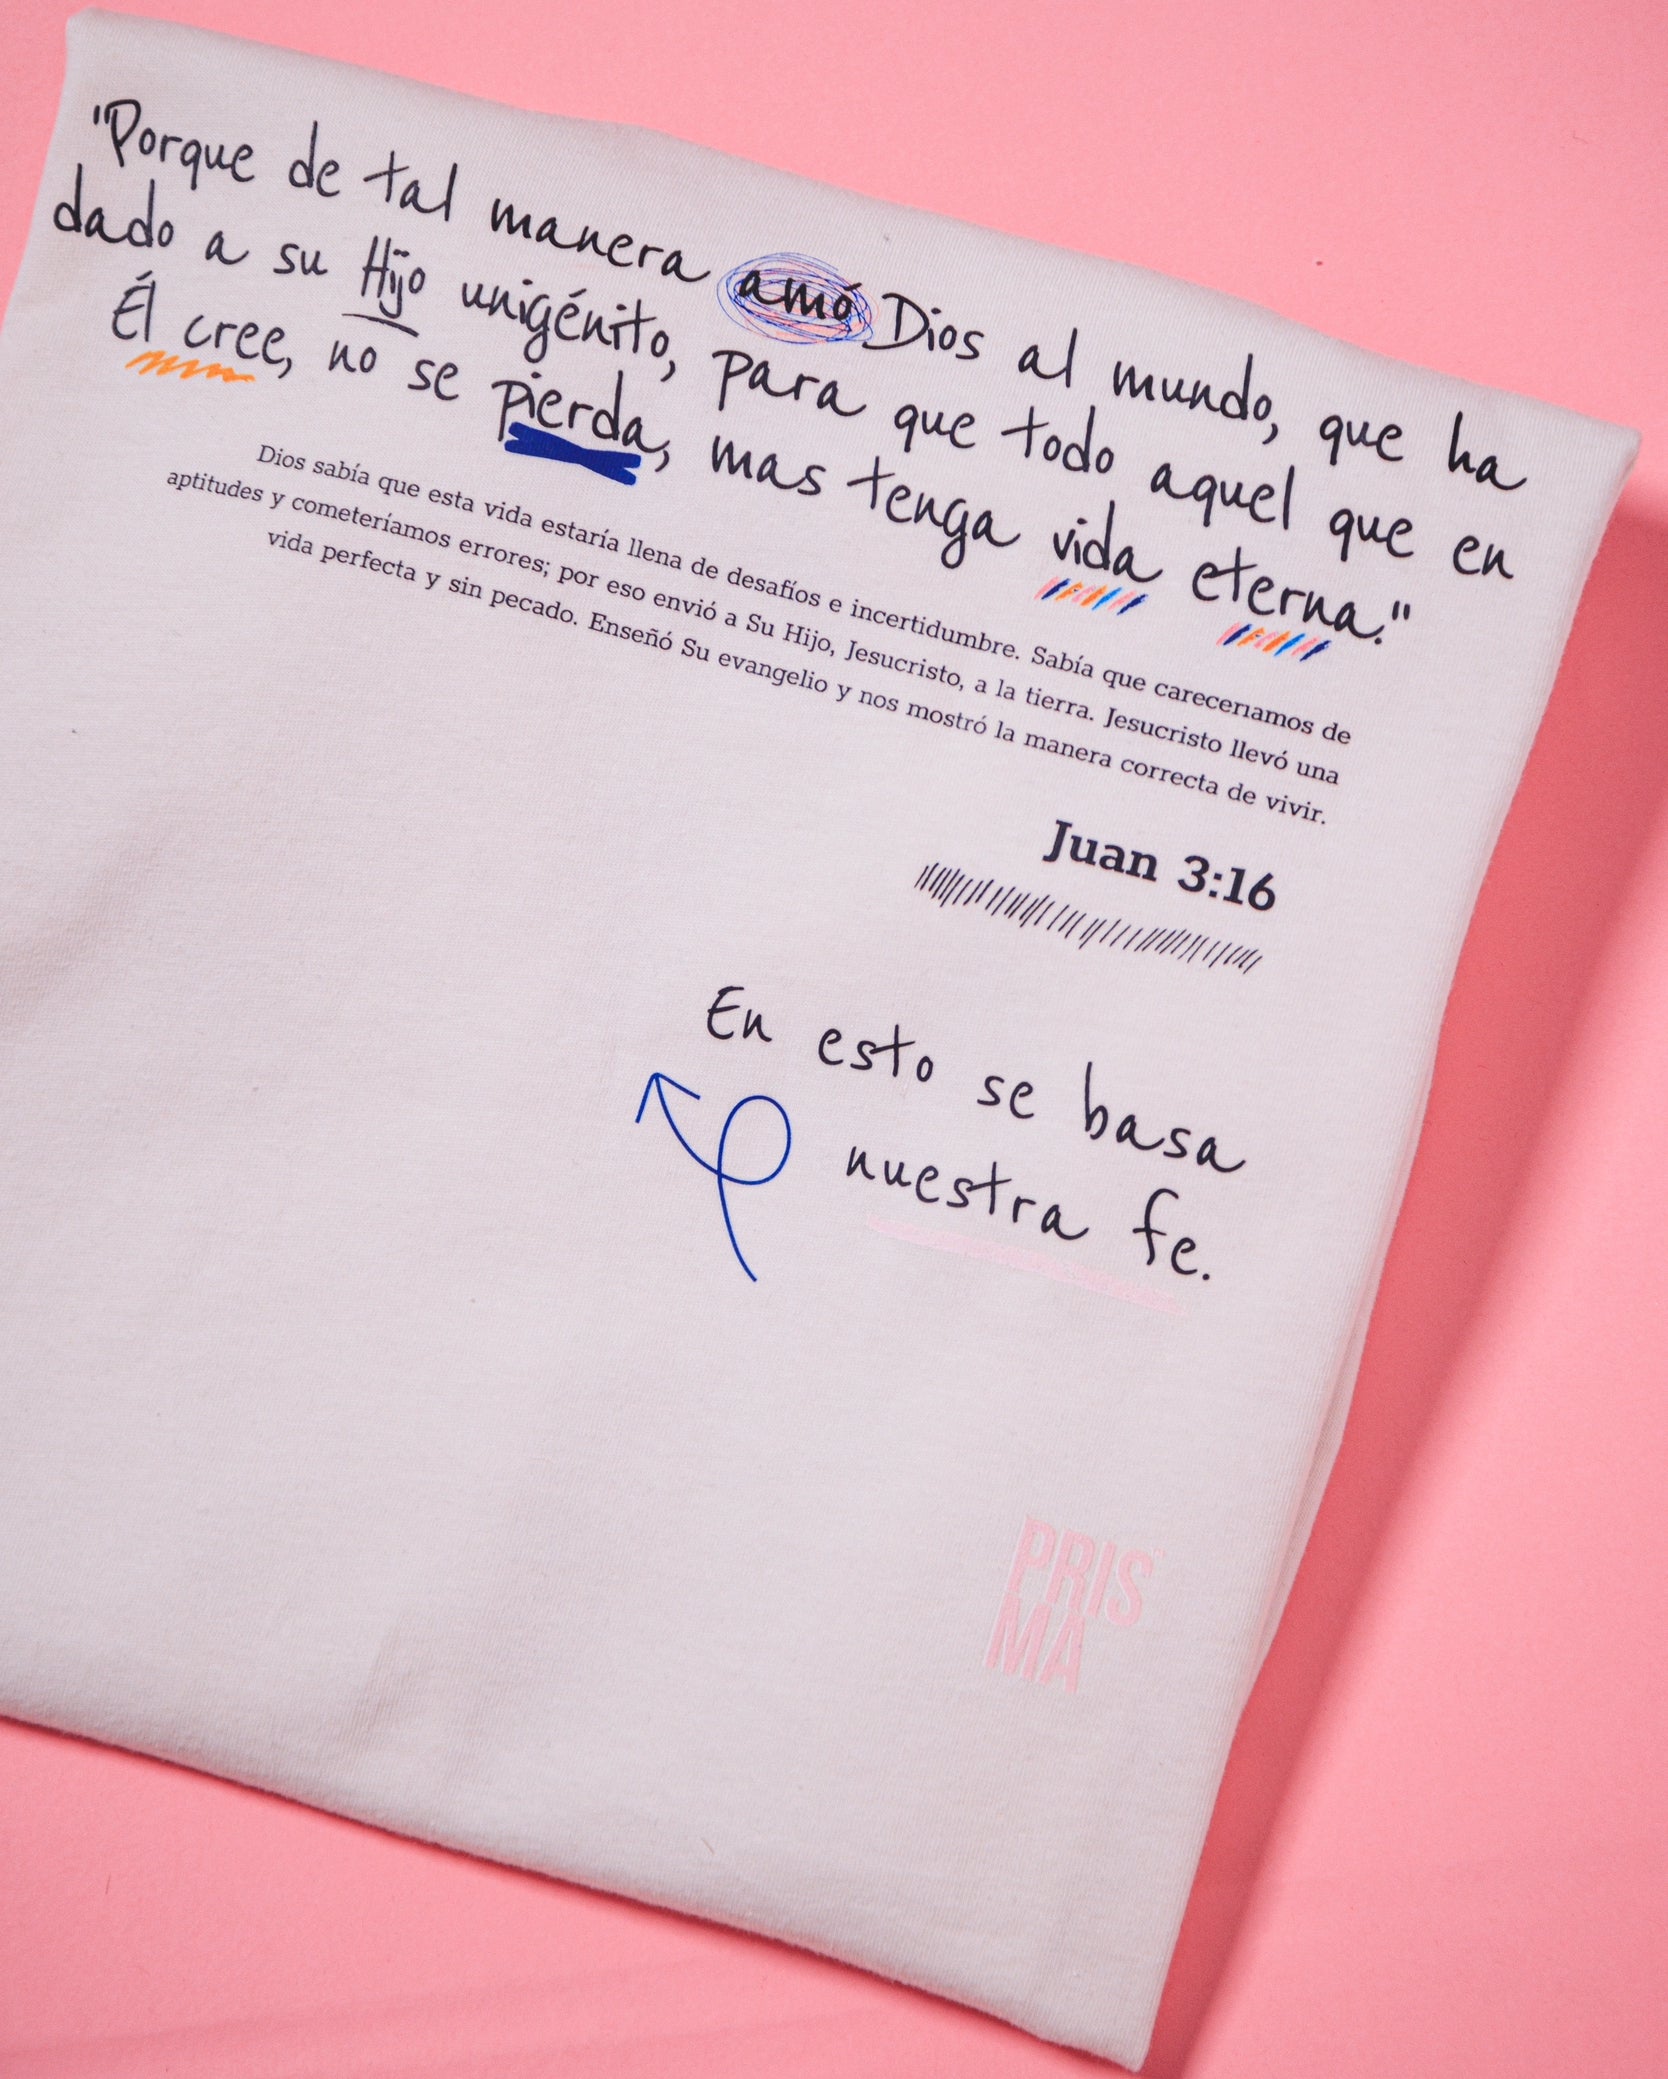 "Porque de tal manera amó Dios al mundo, que ha
dado a su Hijo unigénito, para que todo aquel que en
Él cree, no se pierda, mas tenga vida eterna."
Dios sabía que esta vida estaría llena de desafíos e incertidumbre. Sabía que careceriamos de
aptitudes y cometeríamos errores; por eso envió a Su Hijo, Jesucristo, a la tierra. Jesucristo llevó una
vida perfecta y sin pecado. Enseñó Su evangelio y nos mostró la manera correcta de vivir.
Juan 3:16
En esto se basa
nuestra fe.
PRIS
MA